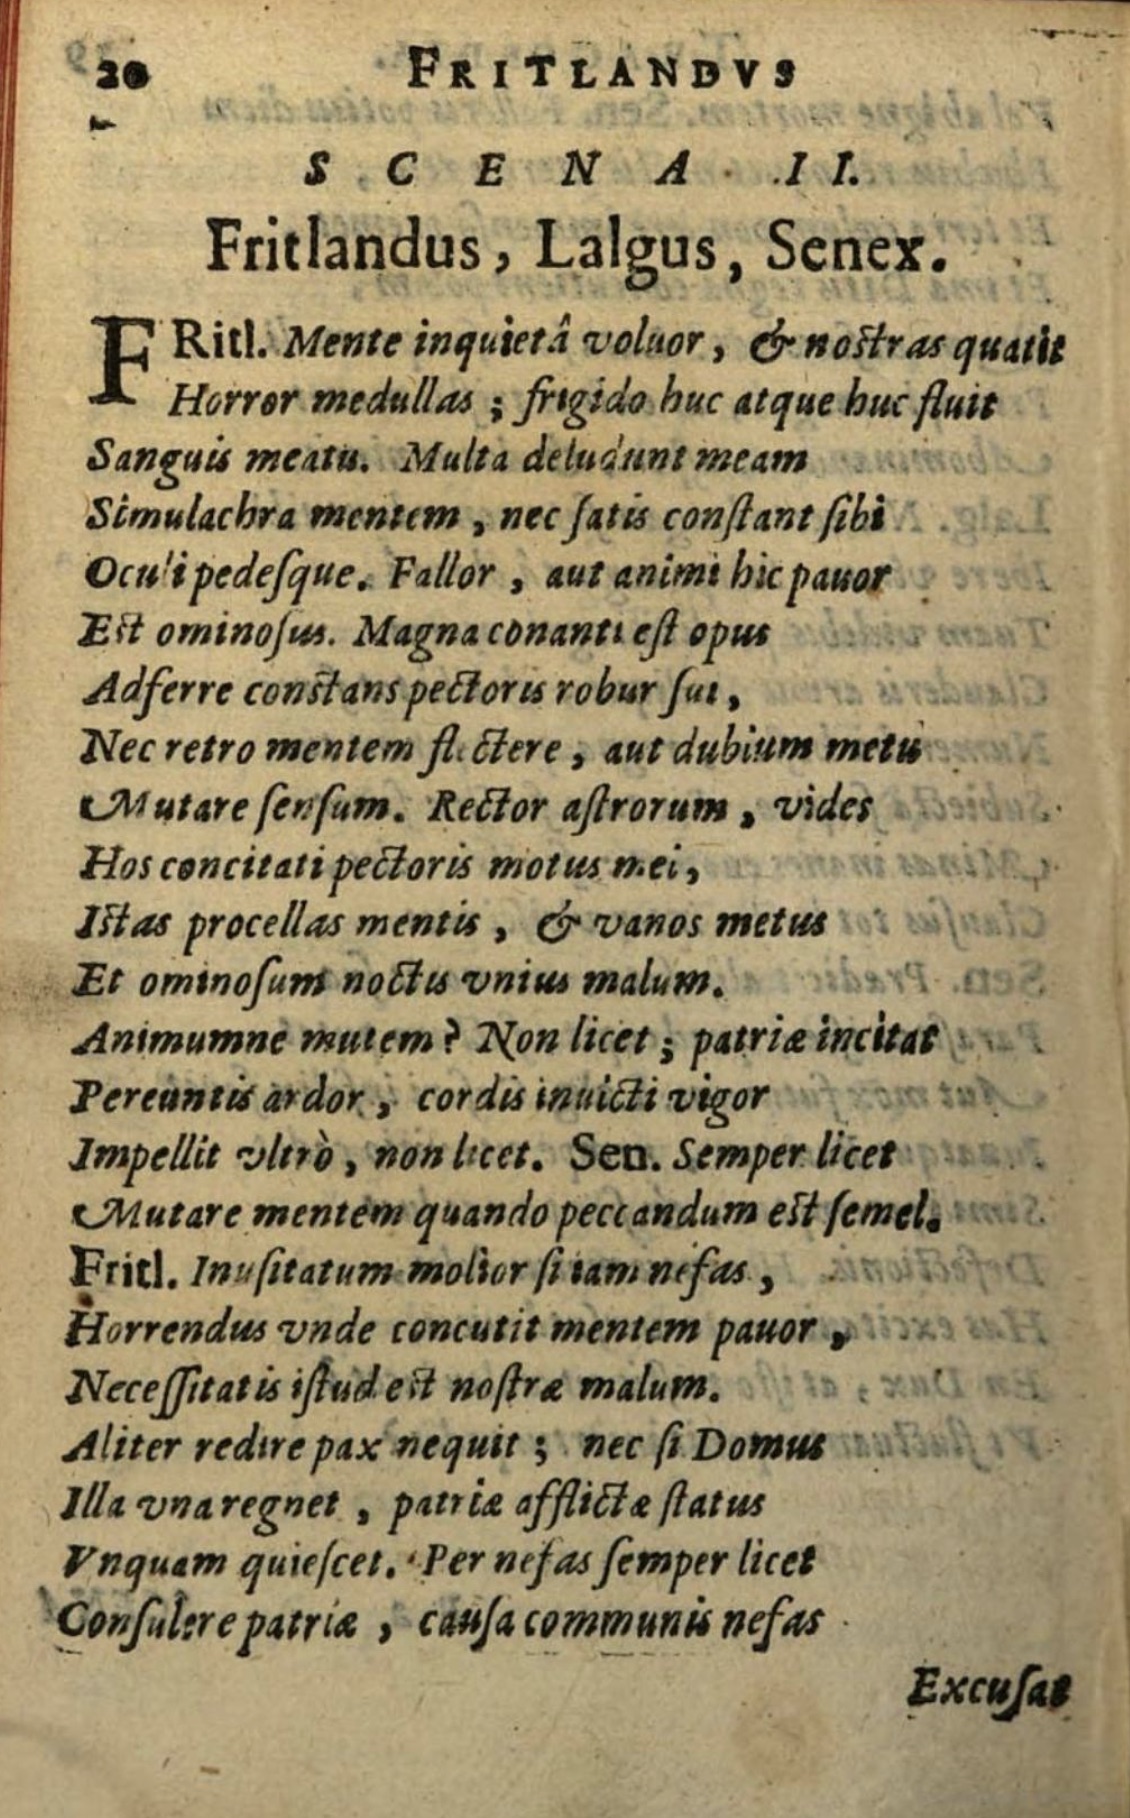 20 FRITLANDVS
SCENA II.
Fritlandus, Lalgus, Senex.
FRitl. Mente inquietâ voluor, & nostras quatit
Horror medullas; frigido huc atque huc fluit
Sanguis meatu. Multa deludunt meam
Simulachra mentem, nec satis constant sibi
Oculi pedesque. Fallor, aut animi hic pauor
Est ominosus. Magna conanti est opus
Adferre constans pectoris robur sui,
Nec retro mentem flectere, aut dubium metu
Mutare sensum. Rector astrorum, vides
Hos concitati pectoris motus mei,
Istas procellas mentis, & vanos metus
Et ominosum noctis vnius malum.
Animumne mutem? Non licet; patriæ incitat
Pereuntis ardor, cordis inuicti vigor
Impellit vltrò, non licet. Sen. Semper licet
Mutare mentem quando peccandum est semel.
Fritl. Inusitatum molior si iam nefas,
Horrendus vnde concutit mentem pauor,
Necessitatis istud est nostræ malum.
Aliter redire pax nequit; nec si Domus
Illa vna regnet, patriæ afflictæ status
Vnquam quiescet. Per nefas semper licet
Consulere patriæ, causa communis nefas
Excusat